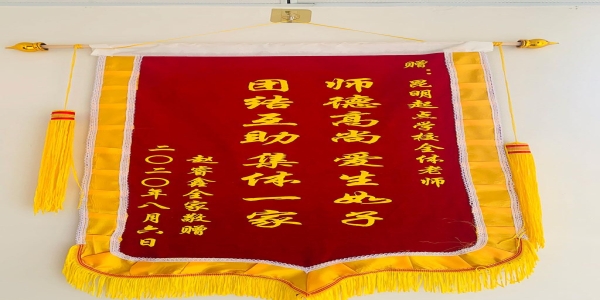 赠：昆明起点学校全体老师
师德高尚爱生如子
团结互助集体一家
赵睿鑫全家敬赠
二〇二〇年八月六日